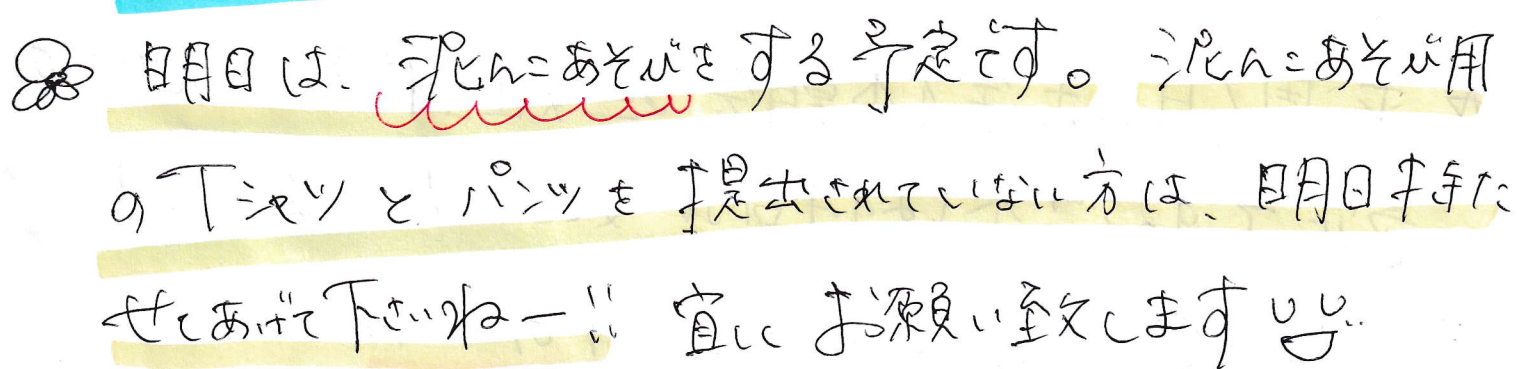 明日は、泥んこあそびをする予定です。泥んこあそび用
のTシャツとパンツを提出されていない方は、明日持た
せてあげて下さいねー!! 宜しくお願い致します